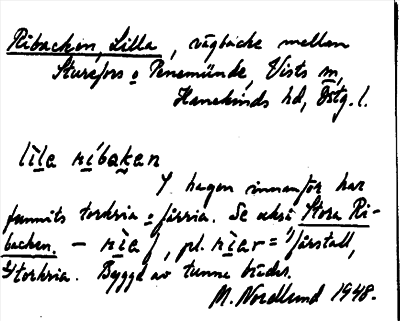 Ribacken, Lilla, vägbacke mellan
Sturefors o Penemünde, Vists sn,
Hanekinds hd, Östg. l.
lìla ríbakan
I hagen innanför har
funnits torkria o fårria. Se också Stora Ri-
backen. – rìa f, pl. rìar = 1) fårstall,
2) torkria. Byggd av tunna bräder.
M. Nordlund 1948.